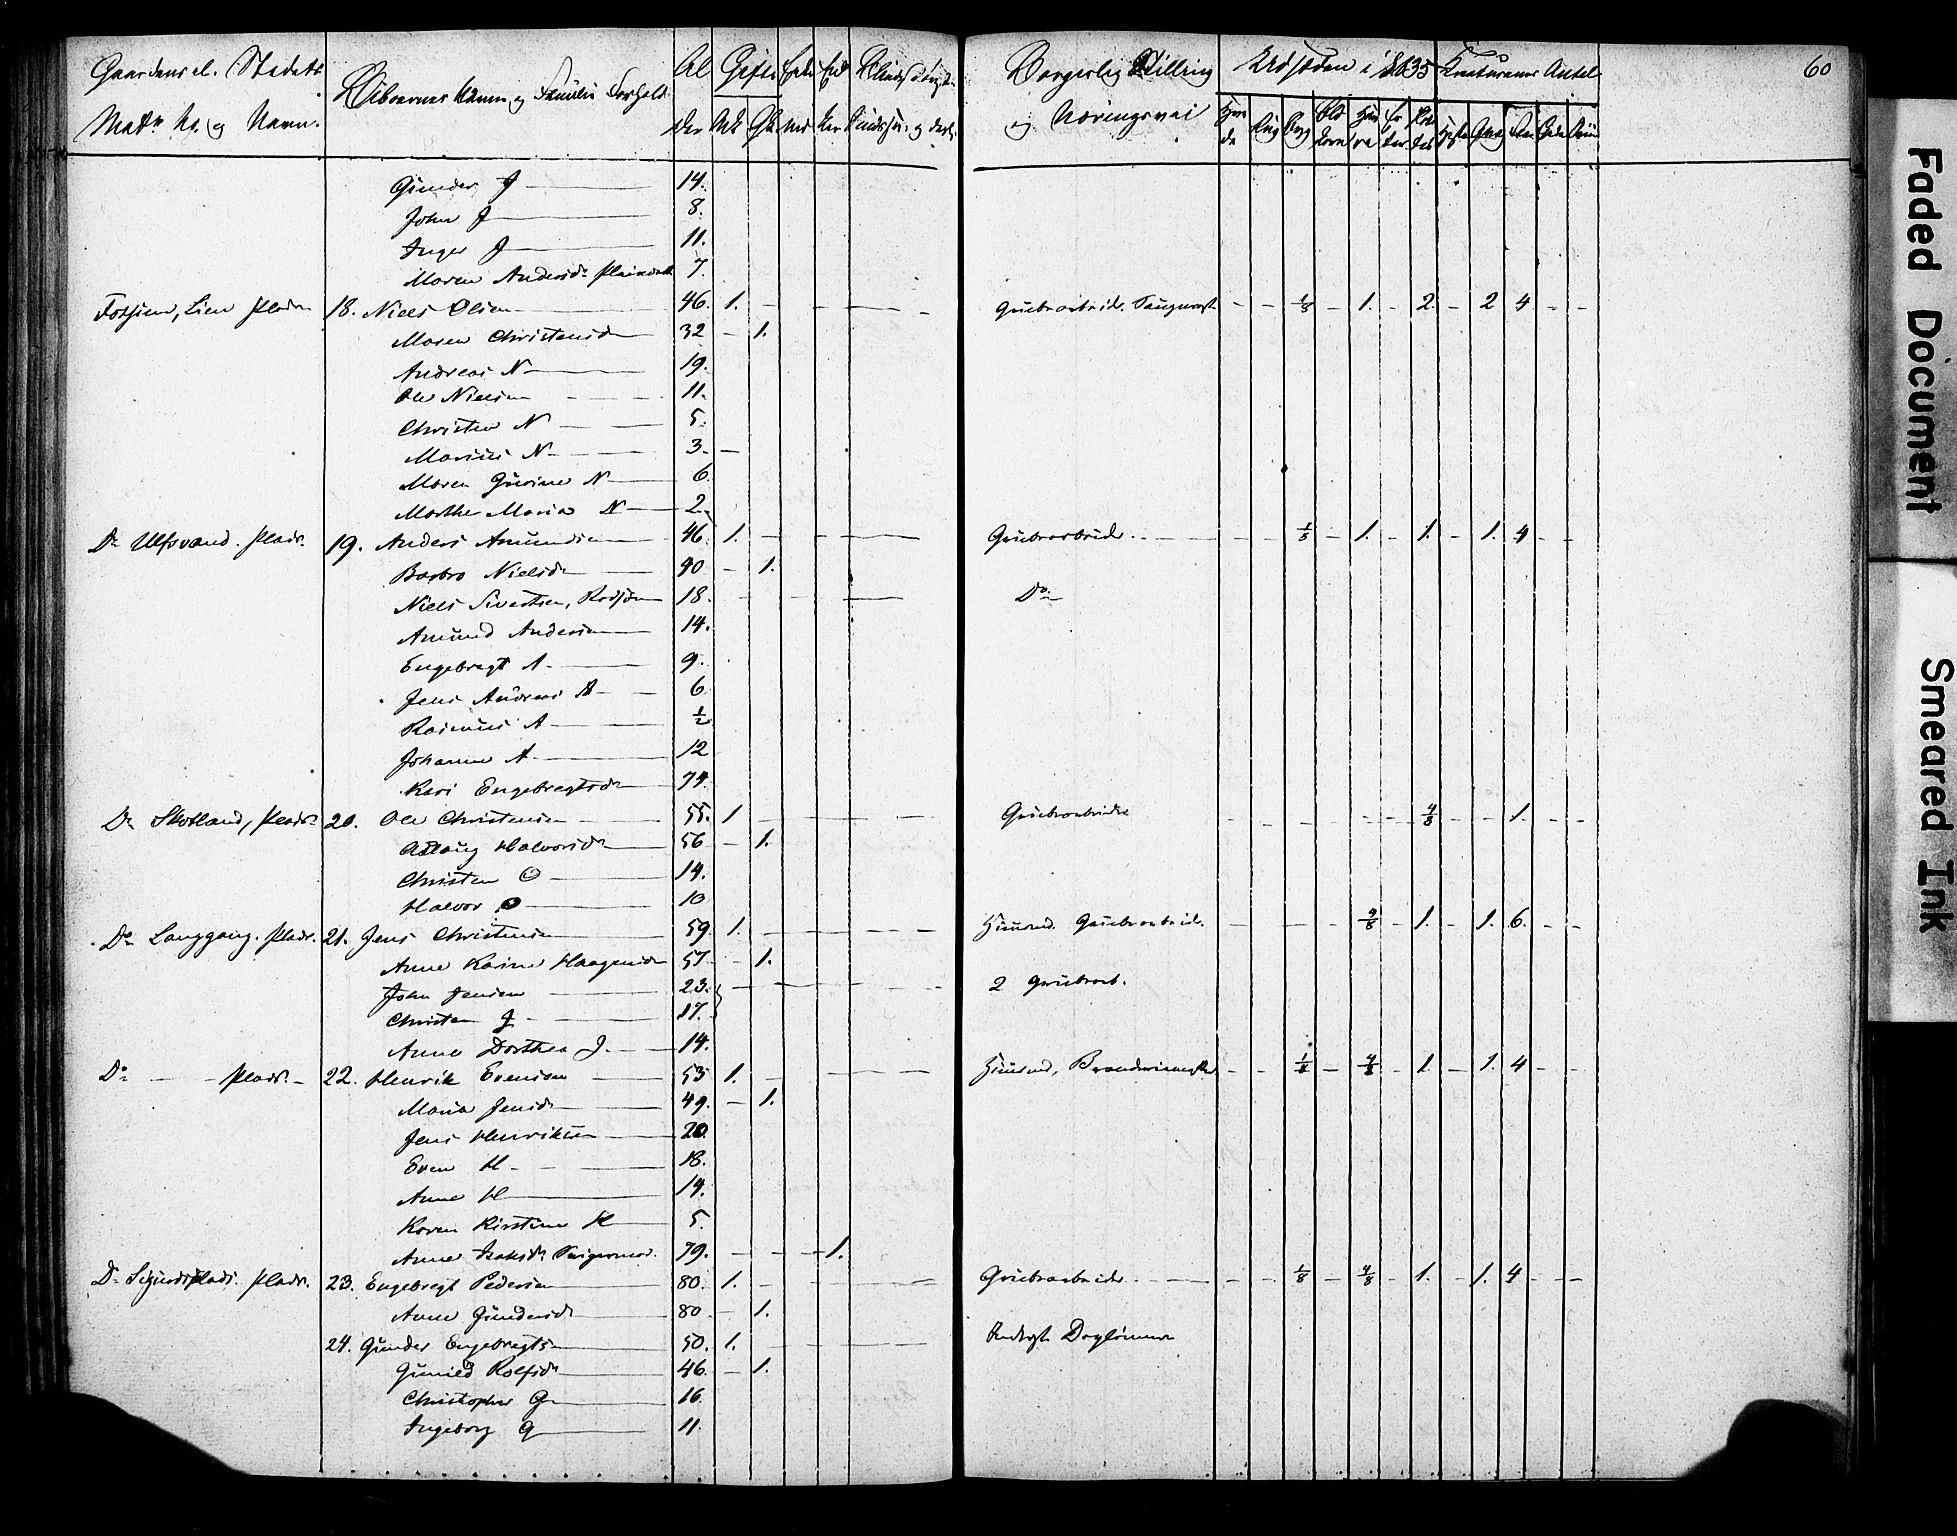 Gaardens el. Stedets Matr. No. og Navn.
Beboernes Navne og Familie Forhold
Alder
Gifte
Mk Qk
Borgerlig Stilling og Næringsvei
Udsæden i 1835
Kreaturenes Antal
60
Hvede Rug Byg
Gunder J 14.
John J 8.
Inger J 11.
Maren Andersdr 7.
Fossum, Lien Plads 18. Niels Olsen 46. 1. Grubearbeider 1/8 1. 2. 2 4
Maren Christensdr 32 1.
Andreas N 19.
Ole Nielsen 11.
Christen N 5.
Marius N 3.
Maren Gurine N 6
Marthe Maria N 2.
Do Ulfsvand. Plads. 19. Anders Amundsen 46. 1. Grubearbeider 1/8 1. 1. 1. 4
Barbro Nielsdr 40 1.
Niels Sivertsen, 18. Do
Amund Andersen 14.
Engebregt A. 9.
Jens Andreas A 6
Rasmus A 1/2
Johanne A. 12
Kari Engebregtsdr 74.
Do Skotland, Plads 20. Ole Christensen 55. 1 Grubearbeider 4/8 1.
Aslaug Halvorsdr 56 1.
Christen O 14.
Halvor O 10
Do Langgang. Plads. 21. Jens Christensen 59. 1. Huusmd. Grubearbeid. 4/8 1. 1. 6.
Anne Karine Haagensdr 57 1.
John Jensen 23. 2 Grubearb.
Christen J 17.
Anne Dorthea J. 14.
Do Plads. 22. Henrik Evensen 53 1. Huusmd, 1/8 4/8 1. 1. 4
Maria Jensdr 49. 1.
Jens Henriksen 20.
Even H 18.
Anne H 14.
Karen Kirstine H 5.
Anne Isaksdr 79. 1.
Do Sigurdsplads. Plads. 23. Engebregt Pedersen 80. 1. Grubearbeider 1/8 4/8 1. 1. 4
Anne Gundersdr 80 1.
24. Gunder Engebregtsen 50. 1. Daglønner
Gunild Rolfsdr 46. 1.
Christopher G 16.
Ingeborg G 11.
Faded Document
Smeared Ink